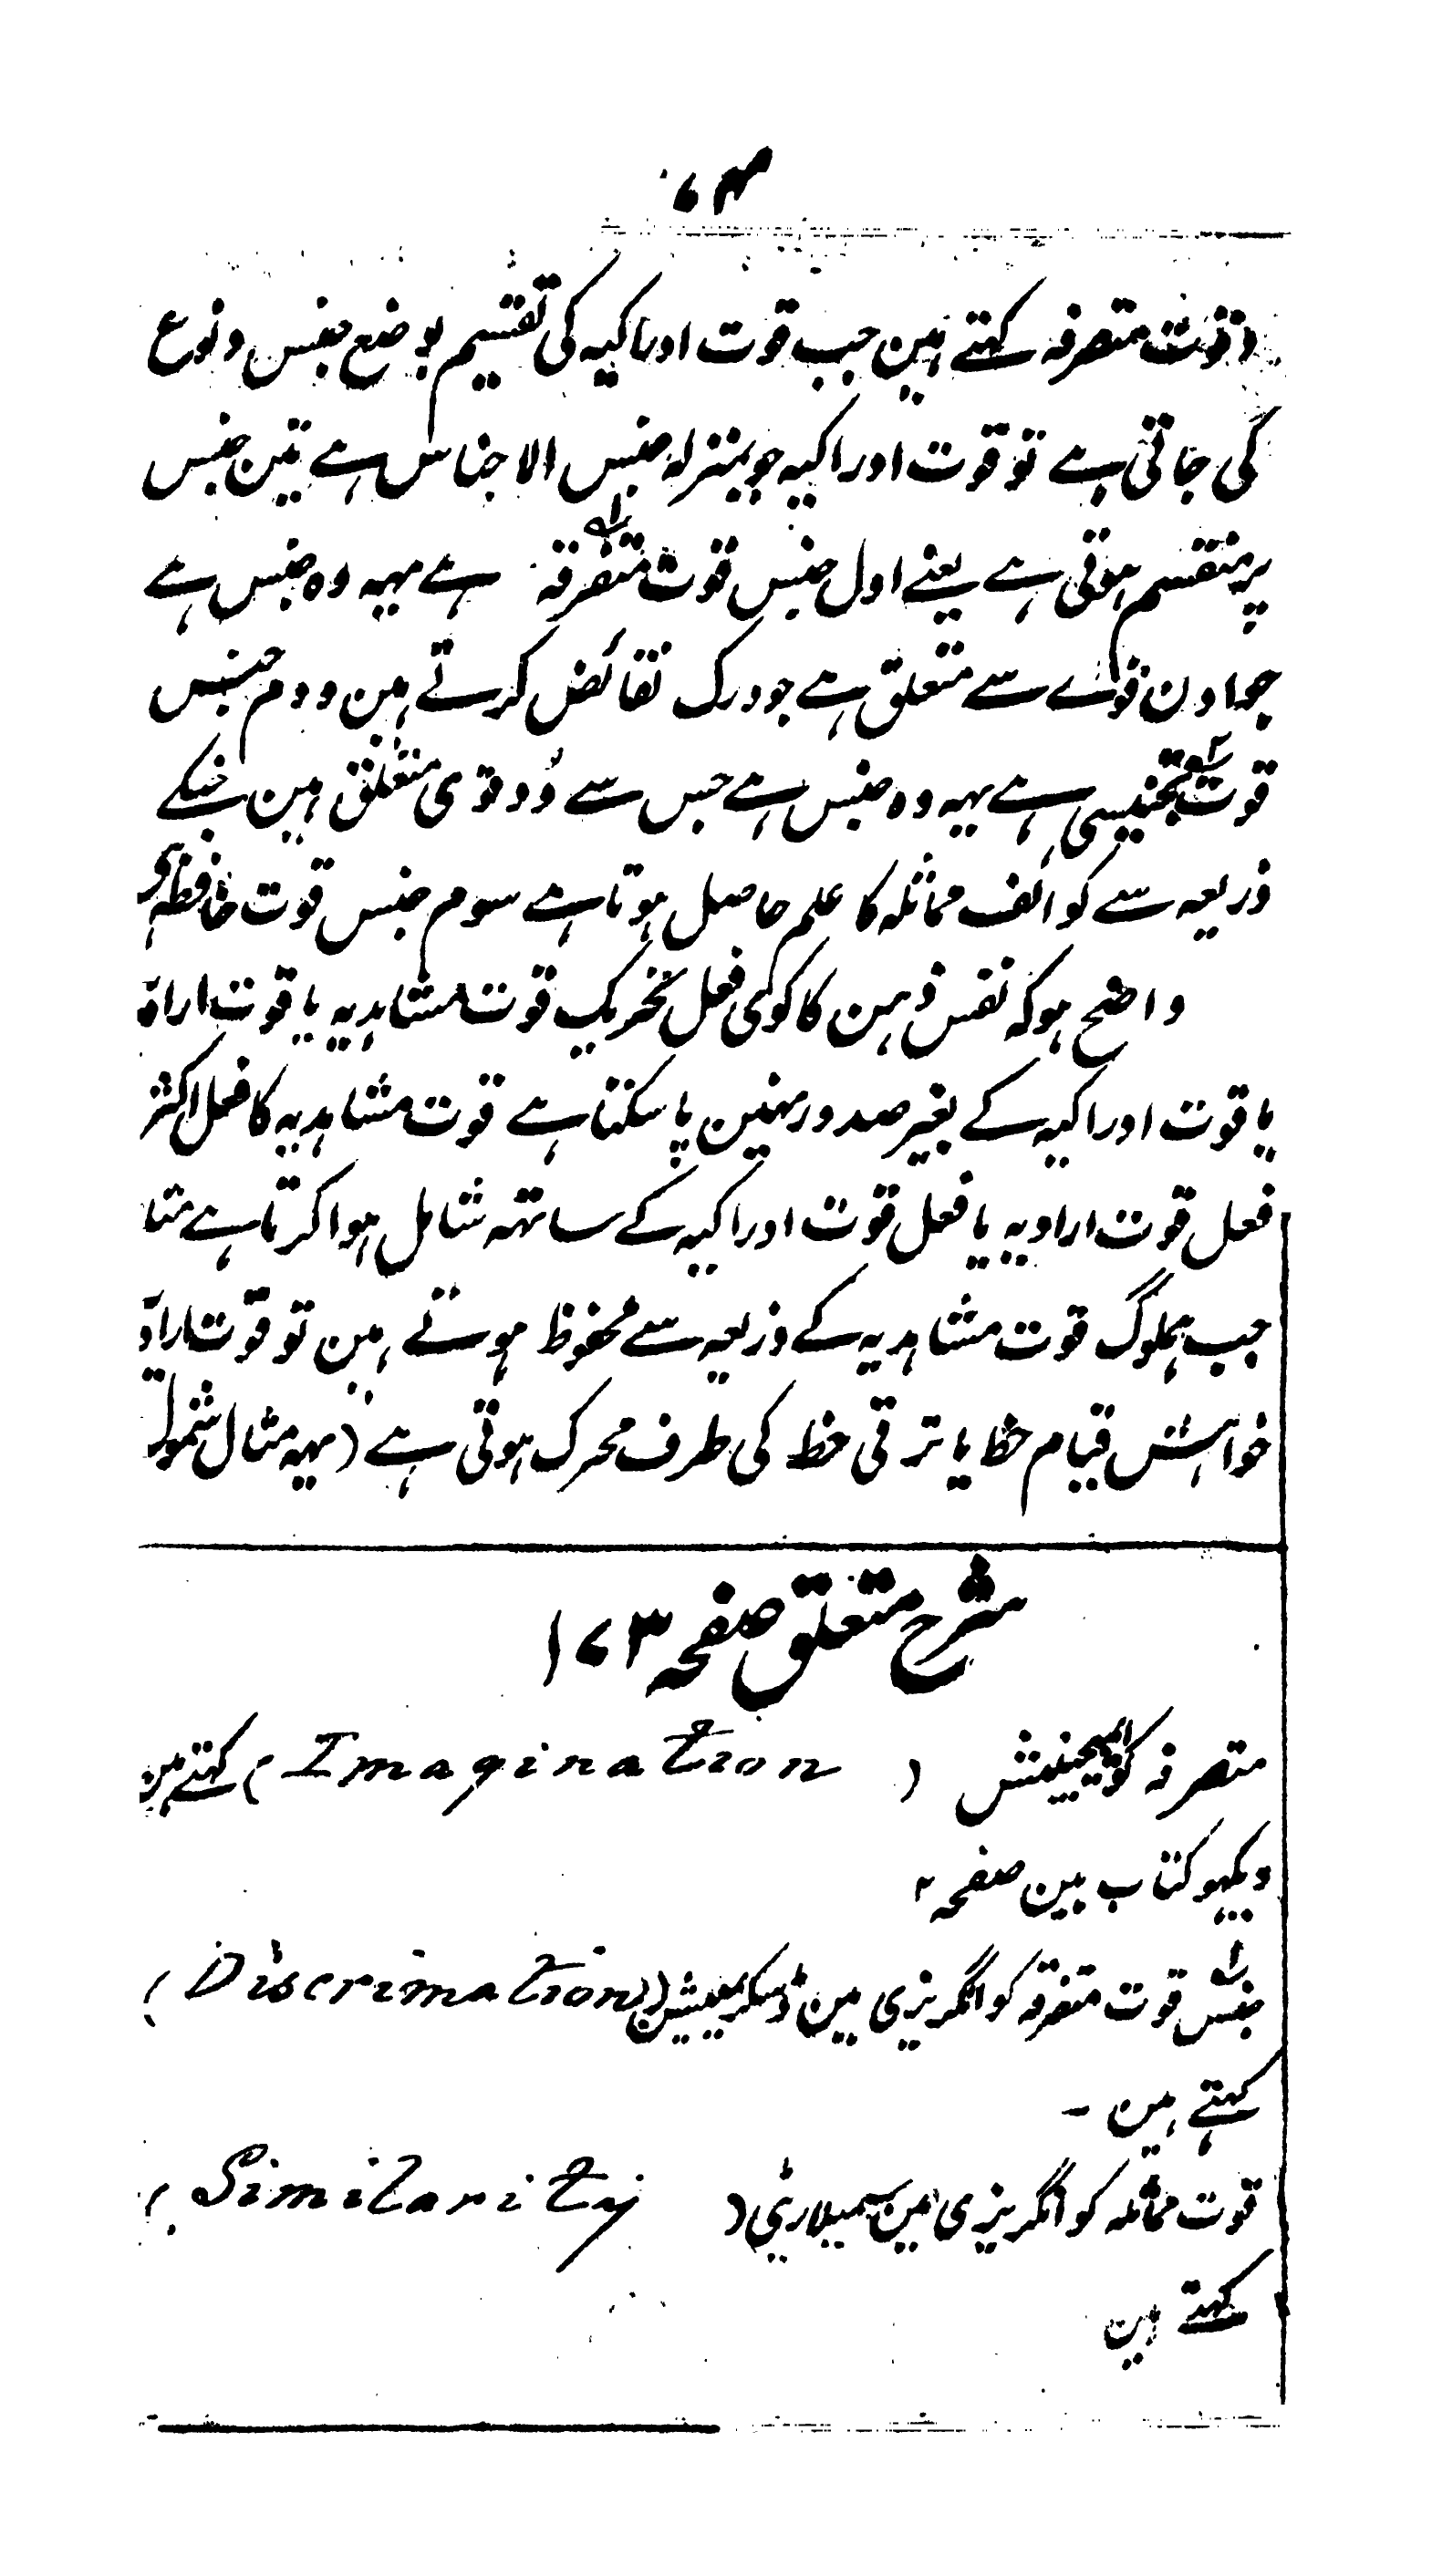 ۷۴
وقوت متصرفہ کہتے ہین جب قوت ادراکیہ کی تقسیم بوضع جنس ونوع
کی جاتی ہے تو قوت ادراکیہ جو بمنزلہ جنس الاجناس ہے تین جنس
پر منقسم ہوتی ہے یعنے اول جنس قوت متفرقہ ہے یہہ وہ جنس ہے
جو اون قوے سے متعلق ہے جو درک نقائض کرتے ہین دوم جنس
قوت تجنیسی ہے یہہ وہ جنس ہے جس سے وُہ قوی متعلق ہین جنکے
ذریعہ سے کوائف مماثلہ کا علم حاصل ہوتا ہے سوم جنس قوت حافظہ ہے
واضح ہو کہ نفس ذہن کا کوئی فعل تحریک قوت مشاہدیہ یا قوت ارادہ
یا قوت ادراکیہ کے بغیر صدور نہین پا سکتا ہے قوت مشاہدیہ کا فعل اکثر
فعل قوت ارادیہ یا فعل قوت ادراکیہ کے ساتہہ شامل ہوا کرتا ہے مثلا
جب ہملوگ قوت مشاہدیہ کے ذریعہ سے محظوظ ہوتے ہین تو قوت ارادیہ
خواہش قیام حظ یا ترقی حظ کی طرف محرک ہوتی ہے (یہہ مثال شمول
شرح متعلق صفحہ ۱۷۳
متصرفہ کو ایمیجینیشن (Imagination) کہتے ہین
دیکہو کتاب ہین صفحہ ۲
جنس قوت متفرقہ کو انگریزی مین ڈسکریمیشن (Discrimation)
کہتے ہین ۔
قوت مماثلہ کو انگریزی مین سیمیلارٹی (Similarity)
کہتے ہین